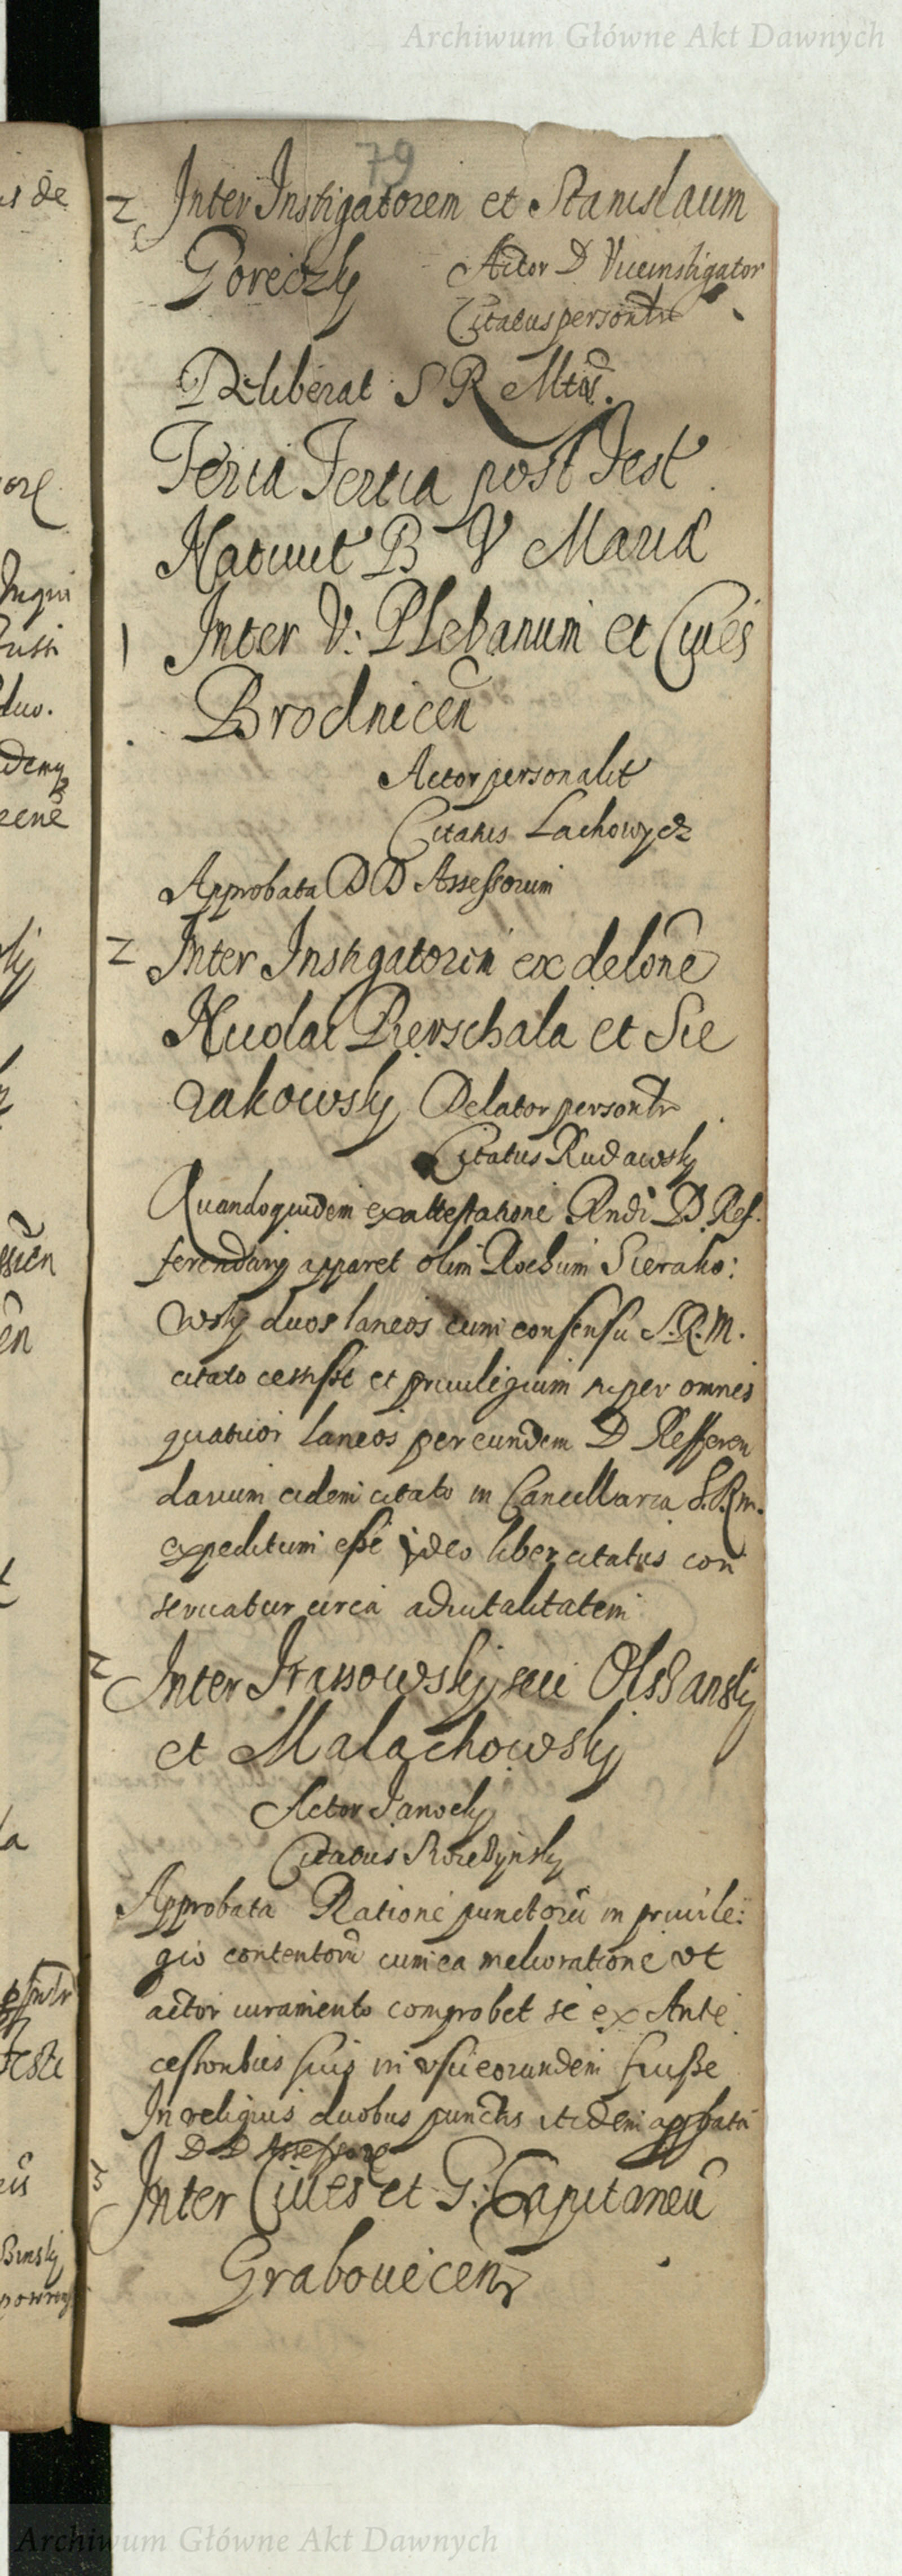 Archiwum Główne Akt Dawnych
79
Inter Instigatorem et Stanislaum
Goreczky Actor D Viceinstigator
Citatus personlr
Deliberat S R Mtis.
Feria Tertia post Fest
Nativit B V Mariæ
Inter V: Plebanum et Cives
Brodnicen
Actor personalit
Citatus Lachowycz
Approbata DD Assessorum
Inter Instigatorem ex delone
Nicolai Pierschala et Sie
rakowsky Delator personlr
Citatus Rudawsky
Quandoquidem ex attestatione Rndi D Ref-
ferendarij apparet olim Rochum Sierako:
wsky duos laneos cum consensu S.R.M.
citato cessisse et privilegium super omnes
quatuor laneos per eundem D Refferen
darium eidem citato in Cancellaria S.R.M.
expeditum esse ideo liber citatus con
servatur circa advitalitatem
Inter seu Olszansky
et Malachowsky
Actor Janocky
Citatus
Approbata Ratione punctorū in privile:
gio contentorū cum ea melioratione vt
actor iuramento comprobet se ex Ante
cessoribus suis in vsu eorundem fuisse
In reliquis duobus punctis itidem appbata
D D Assessorū
Inter Cives et G: Capitaneū
Grabovecen
Archiwum Główne Akt Dawnych